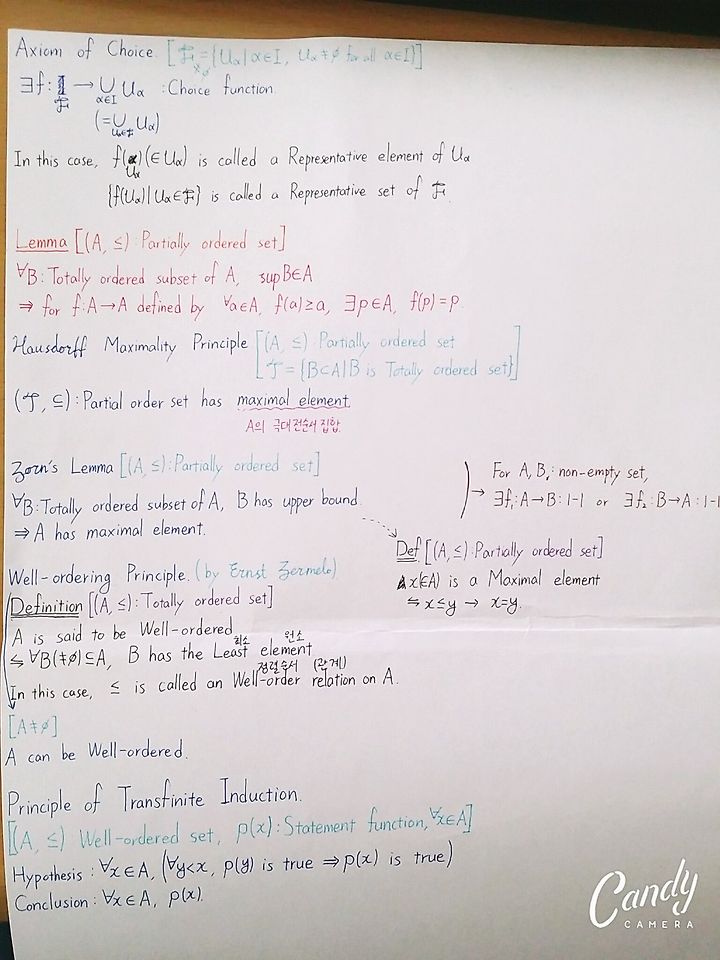 Axiom of Choice. [ℱ = {Uα | α∈I, Uα ≠ ∅ for all α∈I}]
∃f : ℱ → ∪ Uα : Choice function.
α∈I
(= ∪ Uα)
Uα∈ℱ
In this case, f(α)(∈Uα) is called a Representative element of Uα
Uα
{f(Uα) | Uα∈ℱ} is called a Representative set of ℱ.
Lemma [(A, ≤) : Partially ordered set]
∀B : Totally ordered subset of A, supB∈A
⇒ for f : A → A defined by ∀a∈A, f(a) ≥ a, ∃p∈A, f(p) = p.
Hausdorff Maximality Principle [(A, ≤) : Partially ordered set
𝒯 = {B⊂A | B is Totally ordered set}]
(𝒯, ⊆) : Partial order set has maximal element.
A의 극대 전순서 집합.
Zorn's Lemma [(A, ≤) : Partially ordered set]
∀B : Totally ordered subset of A, B has upper bound.
⇒ A has maximal element.
) → For A, B : non-empty set,
∃f₁ : A → B : 1-1 or ∃f₂ : B → A : 1-1
Def [(A, ≤) : Partially ordered set]
x(∈A) is a Maximal element
⇆ x ≤ y → x = y.
Well-ordering Principle. (by Ernst Zermelo)
Definition [(A, ≤) : Totally ordered set]
A is said to be Well-ordered
최소 원소
⇆ ∀B(≠∅)⊆A, B has the Least element
정렬순서 (관계)
In this case, ≤ is called an Well-order relation on A.
[A ≠ ∅]
A can be Well-ordered.
Principle of Transfinite Induction.
[(A, ≤) Well-ordered set, p(x) : Statement function, ∀x∈A]
Hypothesis : ∀x∈A, (∀y<x, p(y) is true ⇒ p(x) is true)
Conclusion : ∀x∈A, p(x).
Candy
CAMERA